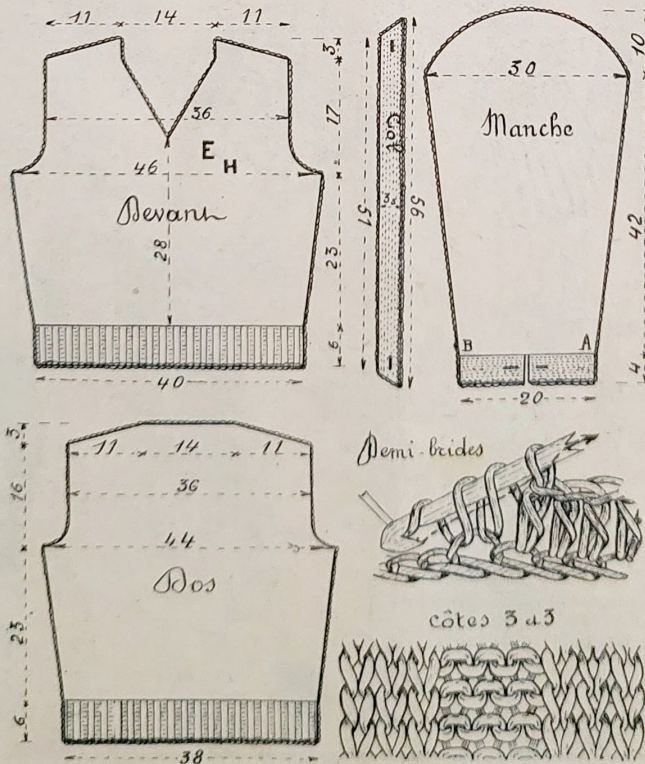 11 14 11
3
17
36
E
H
46
Devant
28
23
6
40
Col
3
51
56
10
30
Manche
42
B A
4
20
3
11 14 11
16
36
44
Dos
23
6
38
Demi-brides
côtes 3 et 3